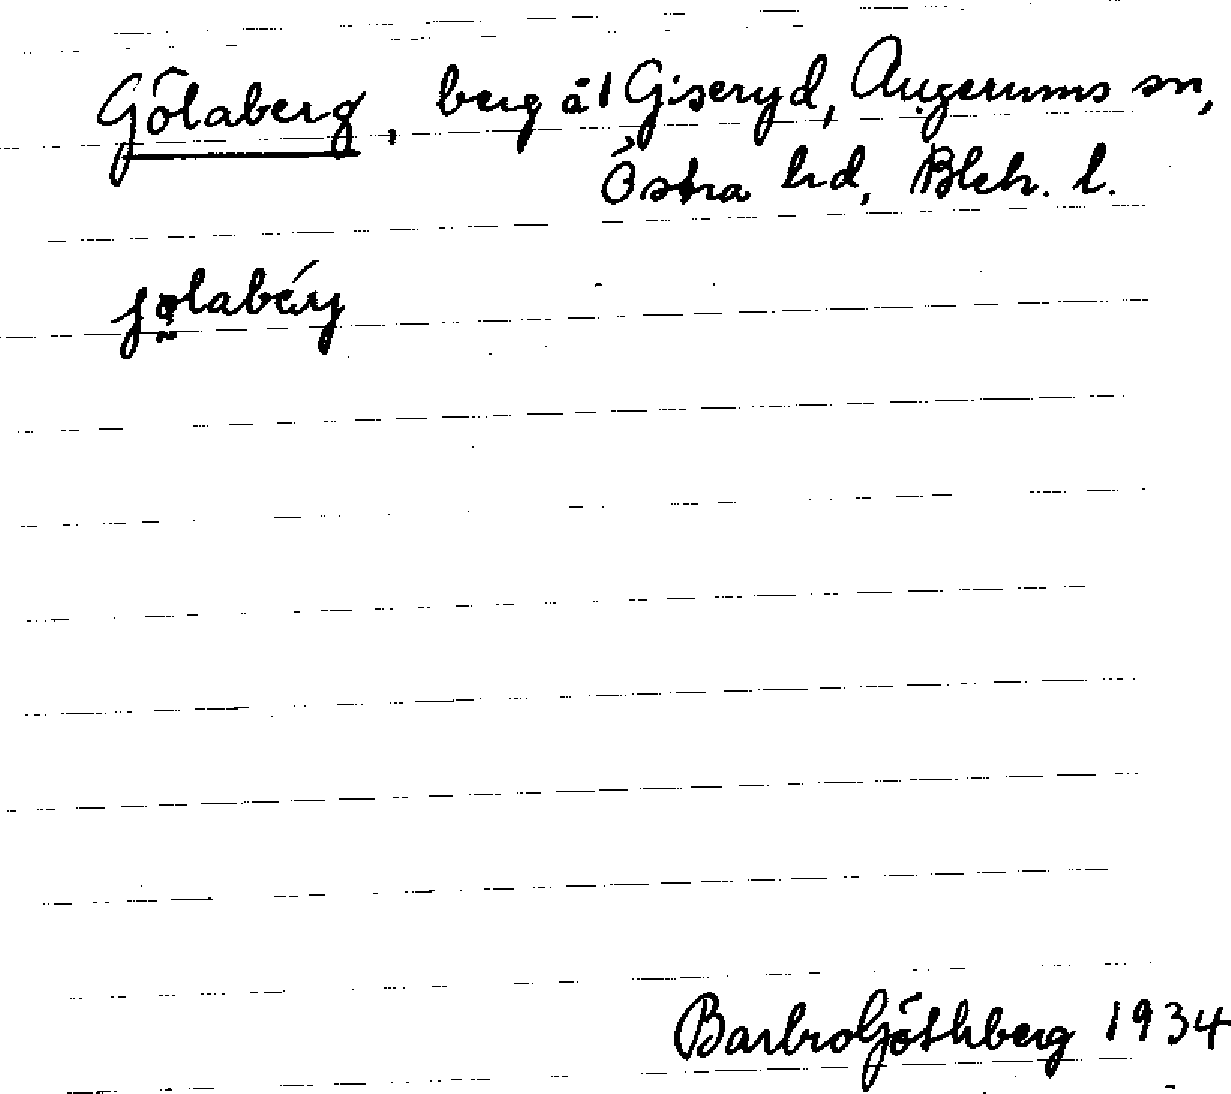 Gölaberg, berg å 1 Giseryd, Augerums sn,
Östra hd, Blek. l.
jølabérj
Barbro Göthberg 1934